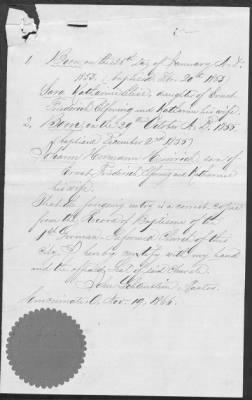 1. Born on the 26th day of January A.D.
1853. (baptized Feb. 20th 1853)
Sara Catharine Elise, daughter of Ernst
Friederich Efning and Catharine his wife.
2. Born on the 29th October A.D. 1855.
(baptized December 2nd 1855)
Johann Hermann Heinrich, son of
Ernst Friederich Efning and Catharine
his wife.
That the foregoing entry is a correct copy
from the Record of Baptisms of the
1st German Reformed Church of this
city, I hereby certify with my hand
and the official seal of said Church.
John Pastor.
Cincinnati O. Nov. 19, 1866.